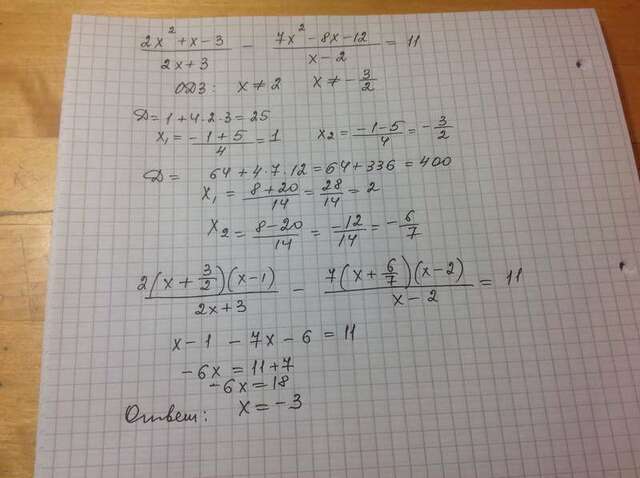 (2x² + x - 3)/(2x + 3) - (7x² - 8x - 12)/(x - 2) = 11
ОДЗ: x ≠ 2 x ≠ -3/2
Д = 1 + 4·2·3 = 25
x₁ = (-1 + 5)/4 = 1 x₂ = (-1 - 5)/4 = -3/2
Д = 64 + 4·7·12 = 64 + 336 = 400
x₁ = (8 + 20)/14 = 28/14 = 2
x₂ = (8 - 20)/14 = -12/14 = -6/7
2(x + 3/2)(x - 1)/(2x + 3) - 7(x + 6/7)(x - 2)/(x - 2) = 11
x - 1 - 7x - 6 = 11
-6x = 11 + 7
-6x = 18
Ответ: x = -3